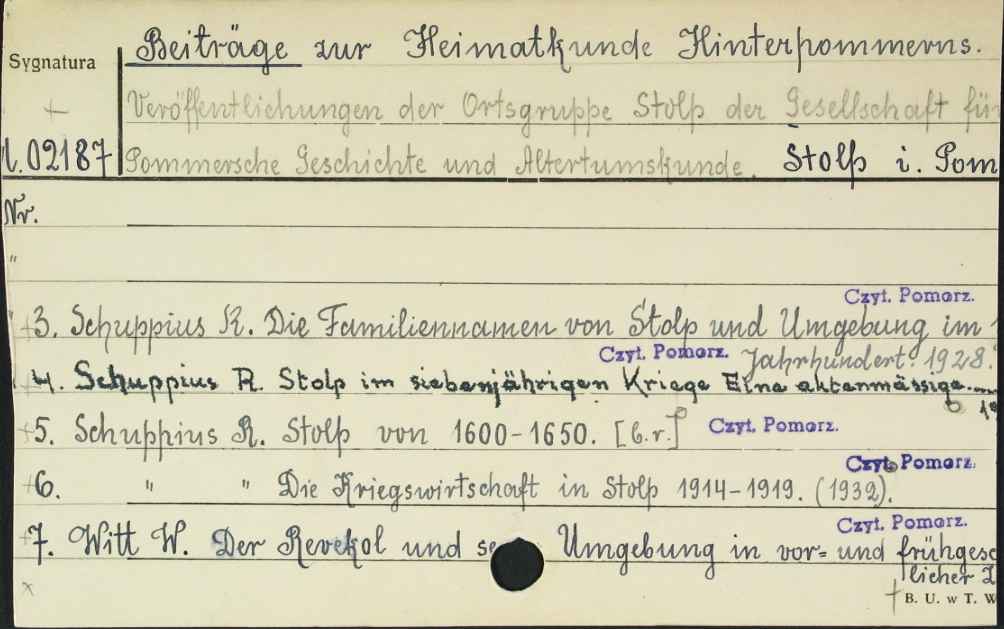 Beiträge zur Heimatkunde Hinterpommerns.
Sygnatura
Veröffentlichungen der Ortsgruppe Stolp der Gesellschaft für
02187 Pommersche Geschichte und Altertumskunde. Stolp i. Pom
Nr.
"
Czyt. Pomorz.
+3. Schuppius R. Die Familiennamen von Stolp und Umgebung im
Czyt. Pomorz. Jahrhundert. 1928.
4. Schuppius R. Stolp im siebenjährigen Kriege Eine aktenmässige
+5. Schuppius R. Stolp von 1600-1650. [b.r.] Czyt. Pomorz.
Czyt. Pomorz.
+6. " " Die Kriegswirtschaft in Stolp 1914-1919. (1932).
Czyt. Pomorz.
+7. Witt W. Der Revekol und se Umgebung in vor= und frühgesc
licher Z
+ B. U. w T. W